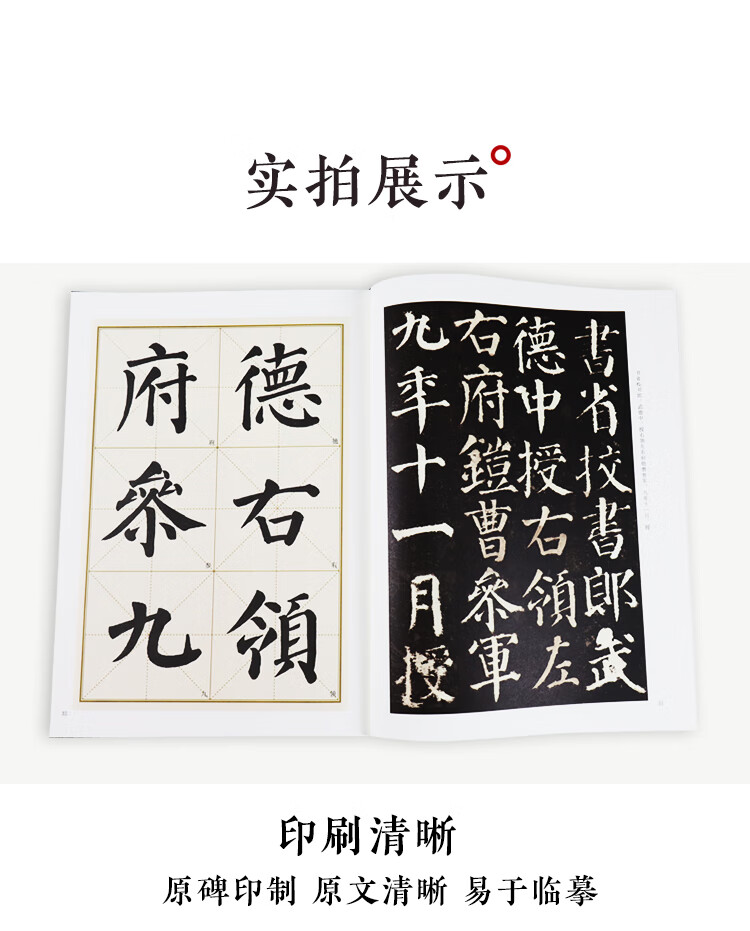 实拍展示
德右領
府參九
書省挍書郎武
德中授右領左
右府鎧曹參軍
九年十一月授
印刷清晰
原碑印制 原文清晰 易于临摹